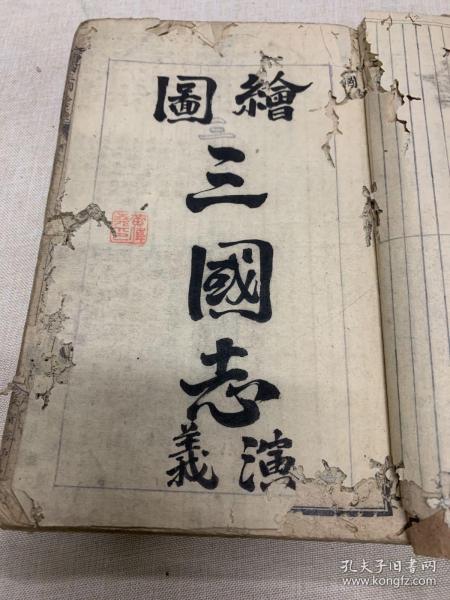 繪圖
三國志
演義
孔夫子旧书网
www.kongfz.com